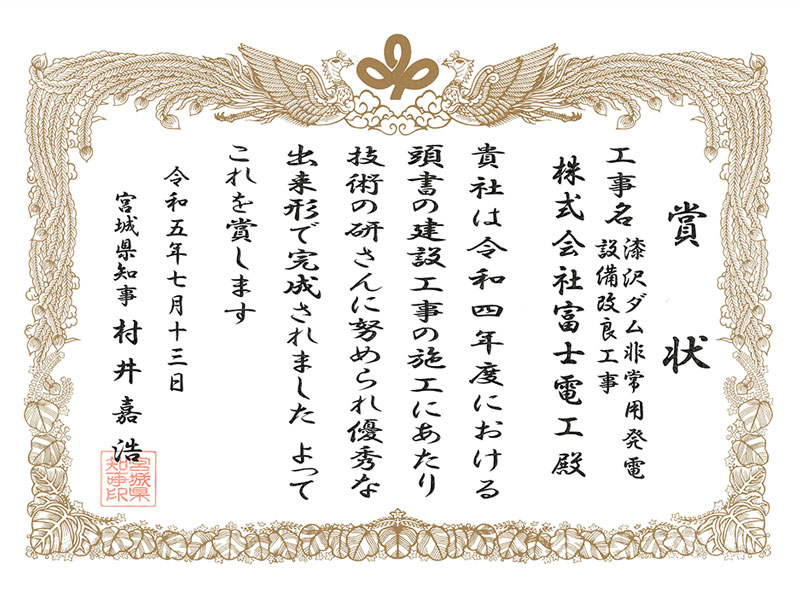 賞状
工事名 漆沢ダム非常用発電
設備改良工事
株式会社富士電工殿
貴社は令和四年度における
頭書の建設工事の施工にあたり
技術の研さんに努められ優秀な
出来形で完成されました よって
これを賞します
令和五年七月十三日
宮城県知事 村井嘉浩
宮城県
知事印